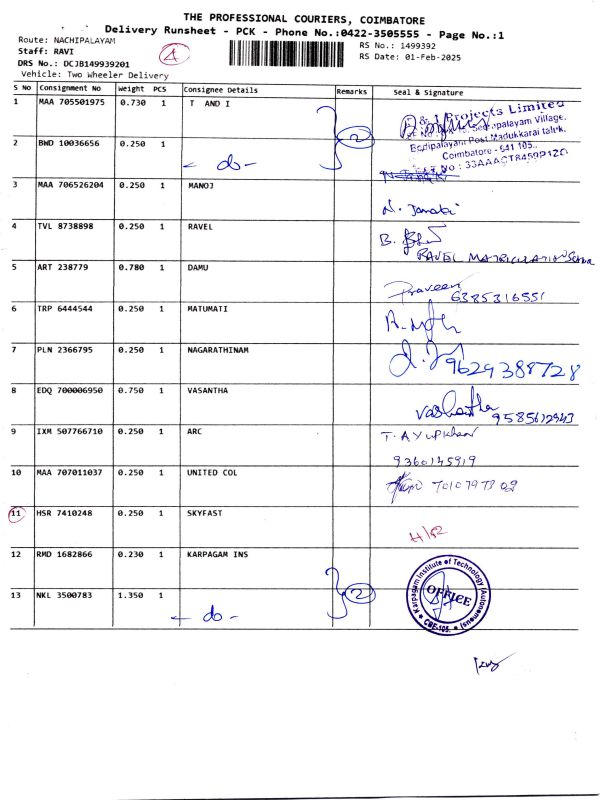 THE PROFESSIONAL COURIERS, COIMBATORE
Delivery Runsheet - PCK - Phone No.:0422-3505555 - Page No.:1
Route: NACHIPALAYAM
RS No.: 1499392
Staff: RAVI
RS Date: 01-Feb-2025
DRS No.: DCJB149939201
Vehicle: Two Wheeler Delivery
S No Consignment No Weight PCS Consignee Details Remarks Seal & Signature
1 MAA 705501975 0.730 1 T AND I 2
Projects Limited
Village,
Post, Madukkarai taluk,
Coimbatore - 641 105.
2 BWD 10036656 0.250 1 - do -
3 MAA 706526204 0.250 1 MANOJ
N. Janaki
4 TVL 8738898 0.250 1 RAVEL
RAVEL MATRICULATION
5 ART 238779 0.780 1 DAMU
Praveen
6385316551
6 TRP 6444544 0.250 1 MATUMATI
7 PLN 2366795 0.250 1 NAGARATHINAM
9629388728
8 EDQ 700006950 0.750 1 VASANTHA
Vasantha
9585612943
9 IXM 507766710 0.250 1 ARC
T. AYUPKhan
9360145919
10 MAA 707011037 0.250 1 UNITED COL
11 HSR 7410248 0.250 1 SKYFAST
12 RMD 1682866 0.230 1 KARPAGAM INS 2
Karpagam Institute of Technology (Autonomous)
OFFICE
CBE-105.
13 NKL 3500783 1.350 1 - do -